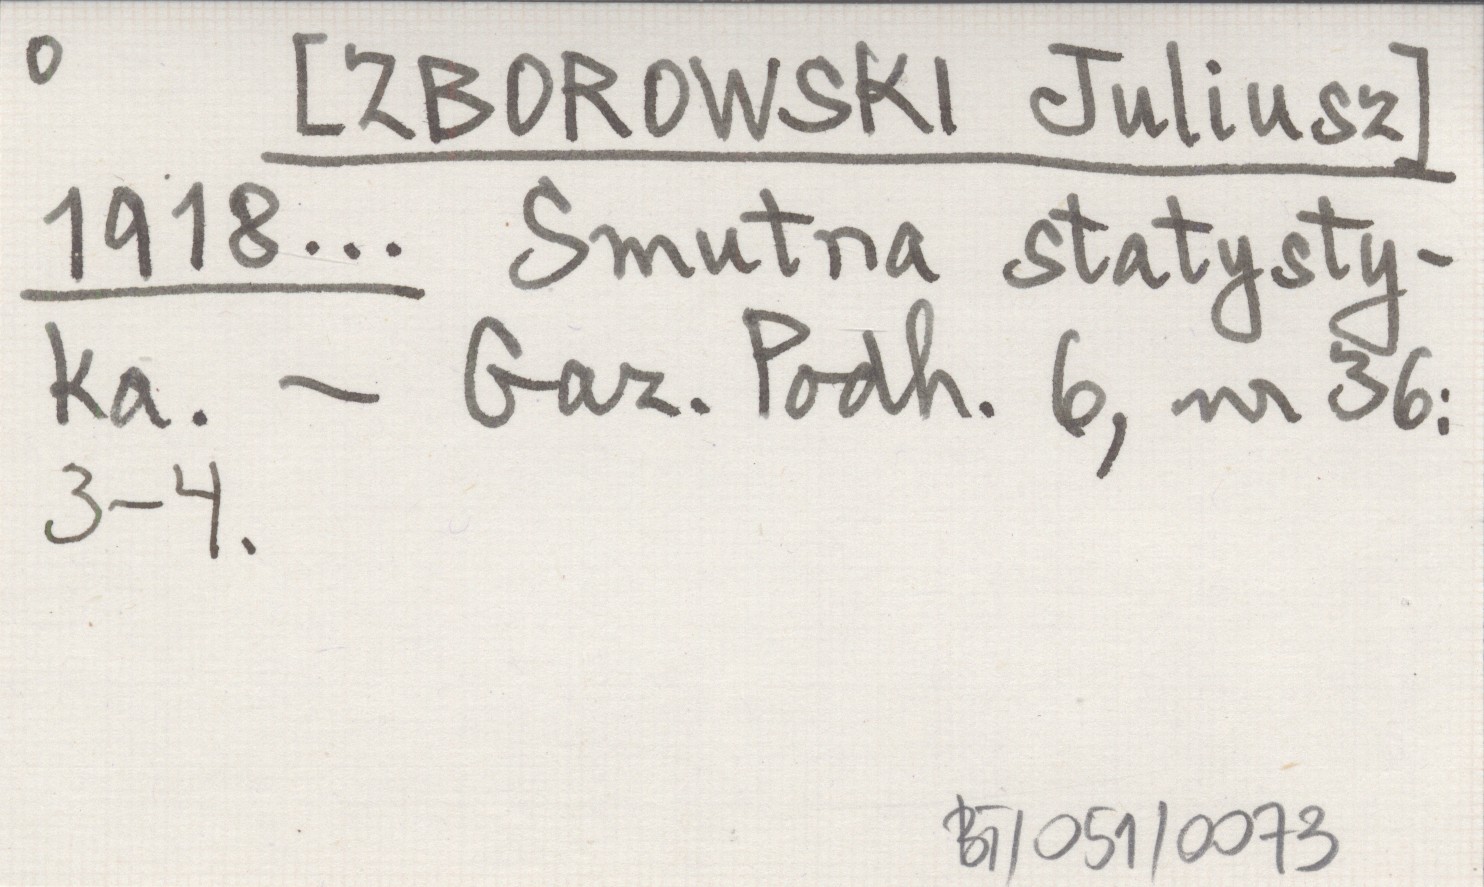 o [ZBOROWSKI Juliusz]
1918... Smutna statysty-
ka. - Gaz. Podh. 6, nr 36:
3-4.
BT/051/0073